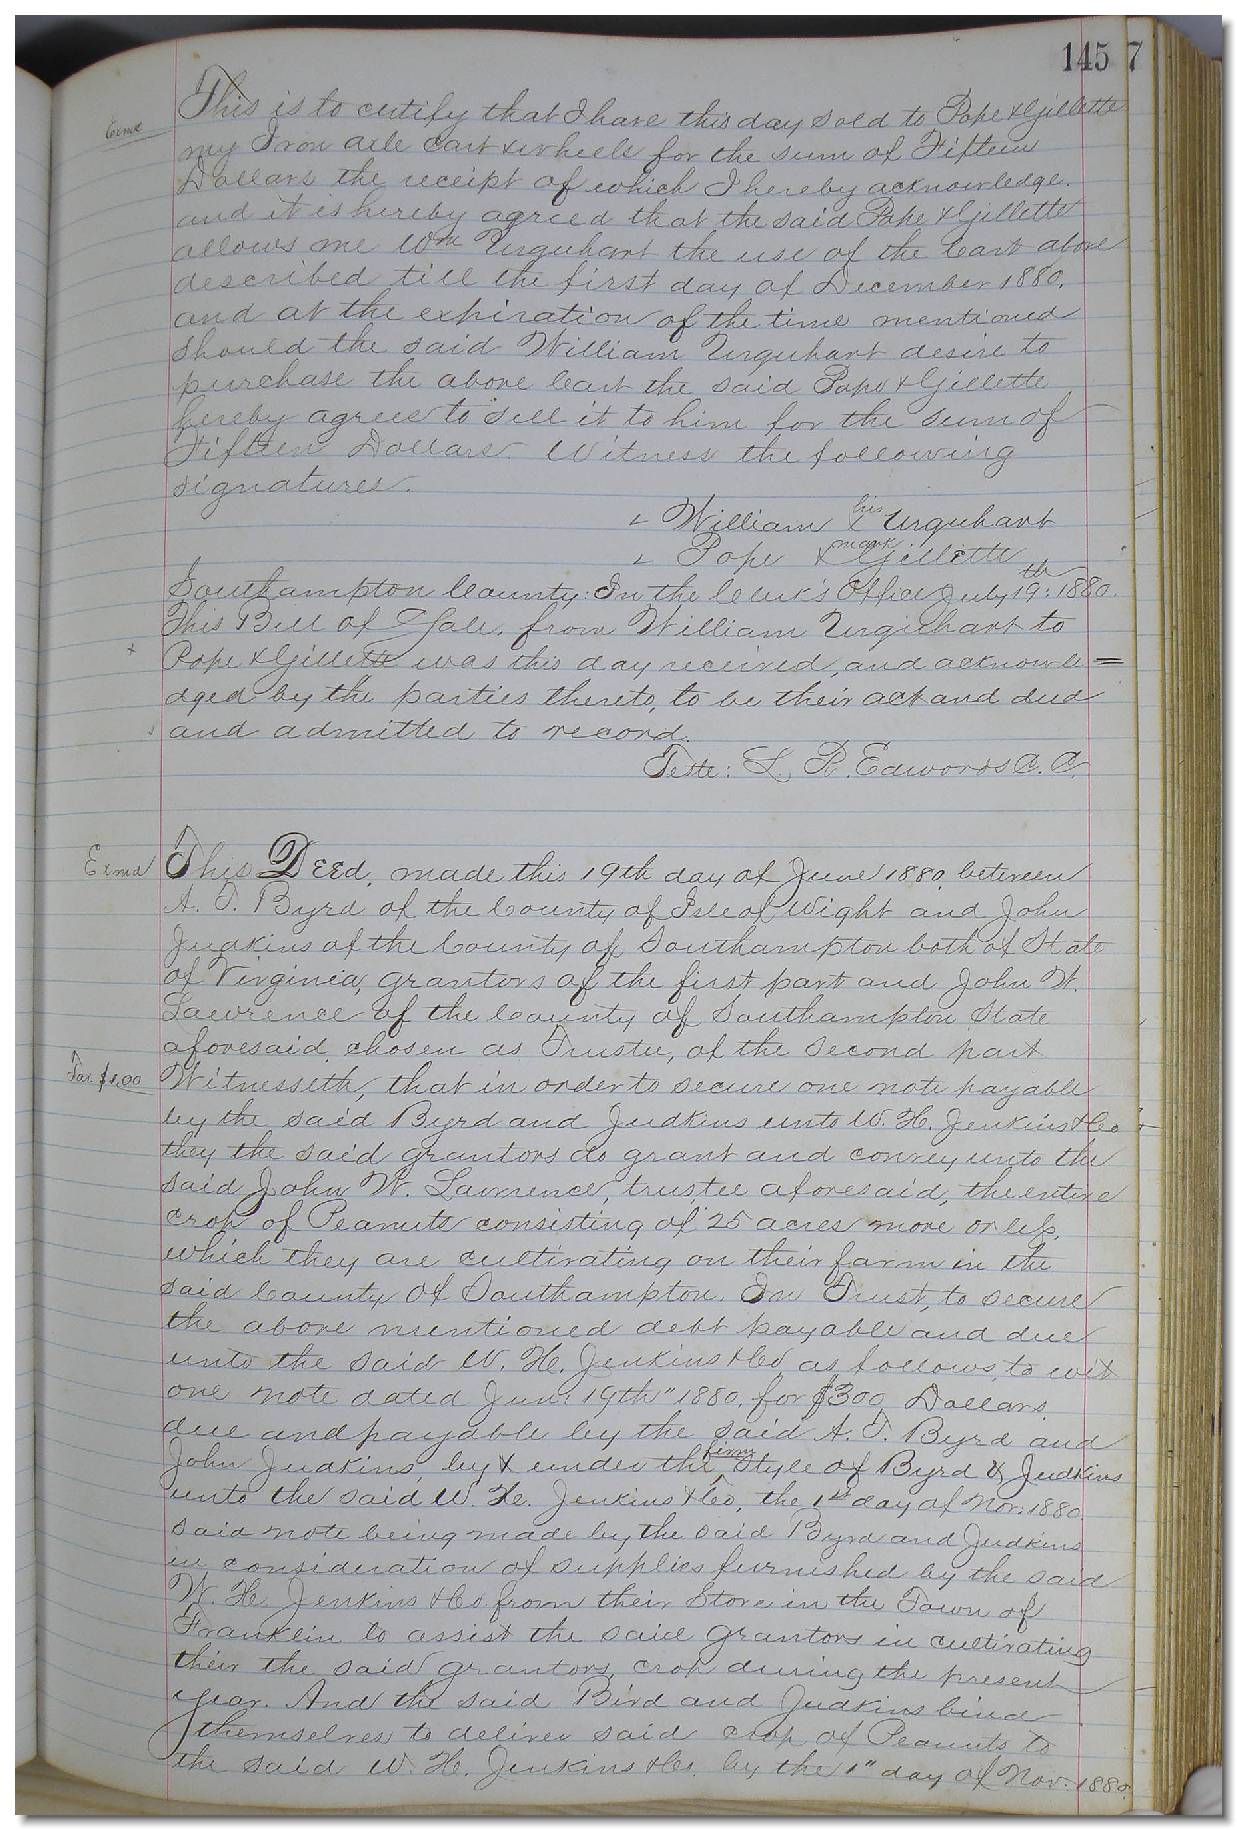 145 7
Exmd This is to certify that I have this day sold to Pope & Gillette
my Iron axle Cart & wheels for the sum of Fifteen
Dollars the receipt of which I hereby acknowledge.
and it is hereby agreed that the said Pope & Gillette
allows me Wm Urquhart the use of the Cart above
described till the first day of December 1880,
and at the expiration of the time mentioned
should the said William Urquhart desire to
purchase the above Cart the said Pope & Gillette
hereby agrees to sell it to him for the sum of
Fifteen Dollars. Witness the following
signatures.
William his x Urquhart
mark
Pope & Gillette
Southampton County: In the Clerk's Office July 19th: 1880.
This Bill of Sale, from William Urquhart to
Pope & Gillette was this day received, and acknowle=
dged by the parties thereto, to be their act and deed
and admitted to record.
Teste: L. R. Edwards C. C.
Exmd This Deed, made this 19th day of June 1880, between
A. T. Byrd of the County of Isle of Wight and John
Judkins of the County of Southampton both of State
of Virginia, grantors of the first part and John W.
Lawrence of the County of Southampton State
aforesaid, chosen as Trustee, of the second part
Tax $1.00 Witnesseth, that in order to secure one note payable
by the said Byrd and Judkins unto W. H. Jenkins & Co
they the said grantors do grant and convey unto the
said John W. Lawrence, trustee aforesaid, the entire
crop of Peanuts consisting of 25 acres more or less,
which they are cultivating on their farm in the
said County of Southampton. In Trust, to secure
the above mentioned debt payable and due
unto the said W. H. Jenkins & Co as follows, to wit
one note dated June 19th" 1880, for $300, Dollars.
due and payable by the said A. T. Byrd and
John Judkins, by & under the firm Style of Byrd & Judkins
unto the said W. H. Jenkins & Co, the 1st day of Nov. 1880.
said note being made by the said Byrd and Judkins
in consideration of supplies furnished by the said
W. H. Jenkins & Co from their Store in the Town of
Franklin to assist the said grantors in cultivating
their the said grantors, crop during the present
year. And the said Bird and Judkins bind
themselves to deliver said crop of Peanuts to
the said W. H. Jenkins & Co. by the 1" day of Nov. 1880.